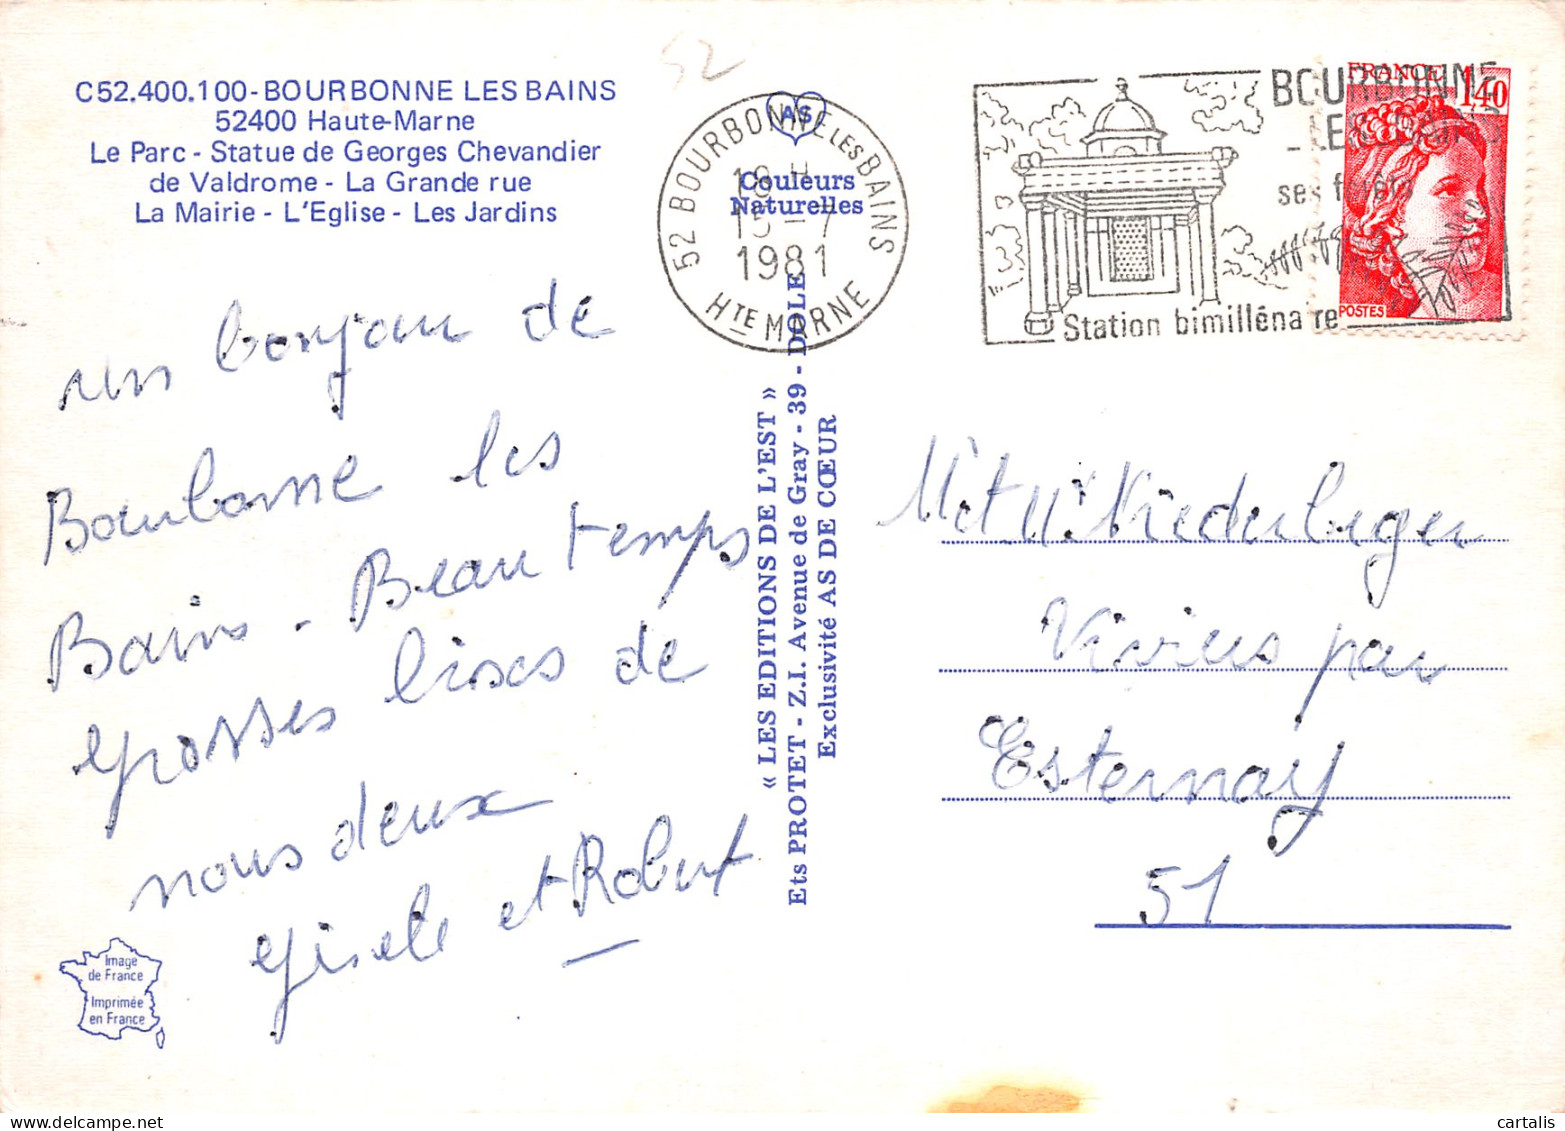 52
C52.400.100-BOURBONNE LES BAINS
52400 Haute-Marne
Le Parc - Statue de Georges Chevandier
de Valdrome - La Grande rue
La Mairie - L'Eglise - Les Jardins
un bonjour de
Bourbonne les
Bains - Beau temps
grosses bises de
nous deux
Gisele et Robert
Image
de France
Imprimée
en France
AS
Couleurs
Naturelles
52 BOURBONNE LES BAINS
18 H
15-7
1981
HTE MARNE
« LES EDITIONS DE L'EST »
Ets PROTET - Z.I. Avenue de Gray - 39 - DOLE
Exclusivité AS DE CŒUR
BOURBONNE
LES BAINS
ses forêts
Station bimillénaire
FRANCE 1,40
POSTES
Mr et Mme Niederberger
Viviers par
Esternay
51
cartalis